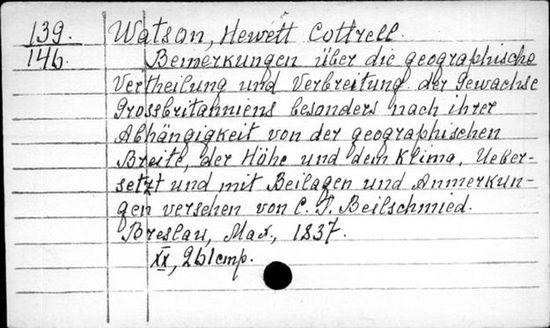 139. Watson, Hewett Cottrell.
146. Bemerkungen über die geographische
Vertheilung und Verbreitung der Gewachse
Grossbritanniens besonders nach ihrer
Abhängigkeit von der geographischen
Breite, der Höhe und dem Klima, Ueber-
setzt und mit Beilagen und Anmerkun-
gen versehen von C. T. Beilschmied.
Breslau, Max, 1837.
XX, 261 cmp.